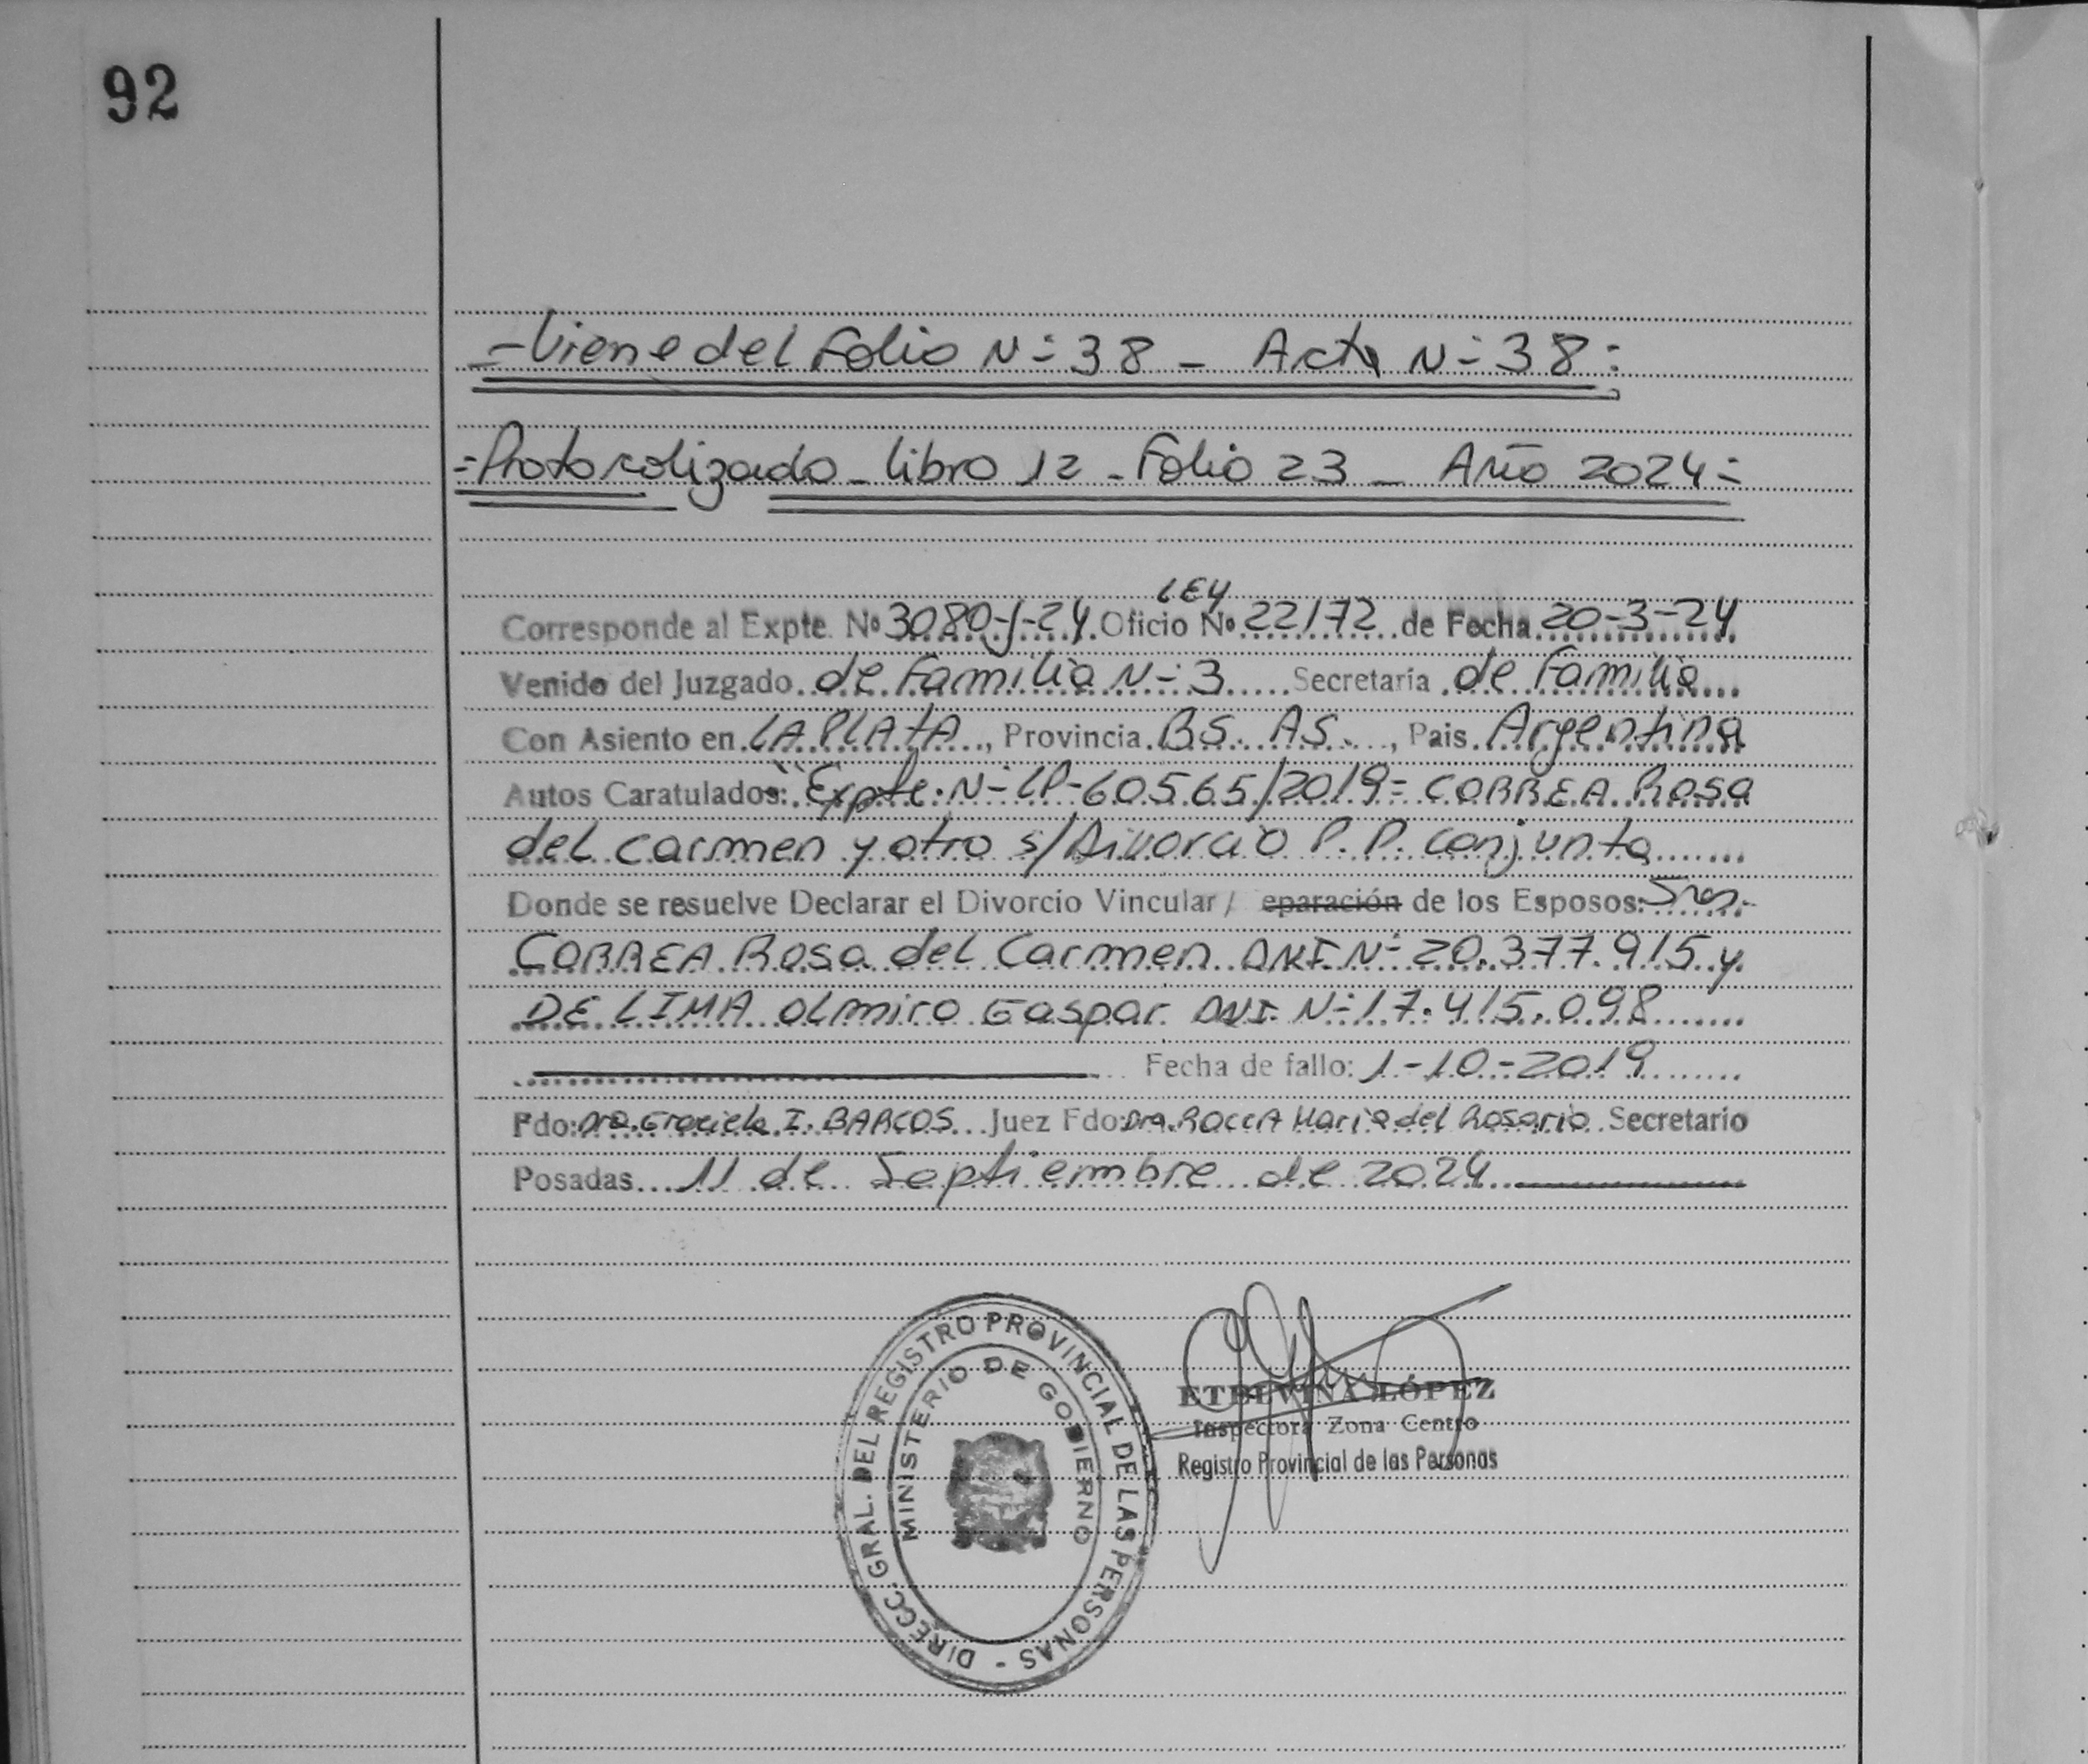 92
- Viene del Folio N- 38 - Acta N- 38 :
- Protocolizado - libro 12 - Folio 23 - Año 2024 -
LEY
Corresponde al Expte. Nº 3080-J-24 Oficio Nº 22172 de Fecha 20-3-24
Venido del Juzgado de Familia N- 3 Secretaria de Familia
Con Asiento en LA PLATA, Provincia BS. AS., Pais Argentina
Autos Caratulados: "Expte. N- LP-60565/2019- CORREA Rosa
del Carmen y otro s/Divorcio P.P. conjunta
Donde se resuelve Declarar el Divorcio Vincular / eparación de los Esposos: Sres.
CORREA Rosa del Carmen DNI N- 20.377.915 y
DE LIMA Olmiro Gaspar DNI N- 17.415.098
Fecha de fallo: 1-10-2019
Fdo: Dra. Graciela I. BARCOS Juez Fdo: Dra. ROCCA Maria del Rosario Secretario
Posadas 11 de Septiembre de 2024
DIRECC. GRAL. DEL REGISTRO PROVINCIAL DE LAS PERSONAS -
MINISTERIO DE GOBIERNO
ETELVINA LÓPEZ
Inspectora Zona Centro
Registro Provincial de las Personas